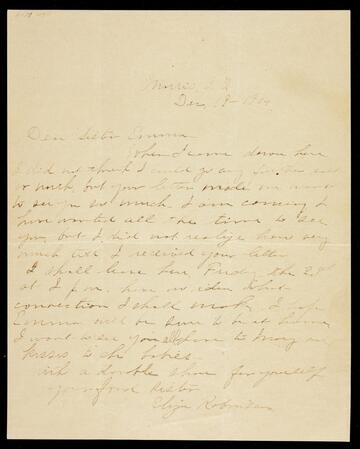 Dec, 18 1904
Dear Sister Emma
When I came down here
I did not think I could go any further east
or north, but your letter made me want
to see you so much I am coming I
have wanted all the time to see
you but I did not realize how very
much till I received your letter
I shall leave here Friday the 23rd
at 1 p.m. have no idea what
connection I shall make, I hope
Emma will be sure to be at home
I want to see you all love to Mary and
kisses to the babies
with a double share for yourself
your fond sister
Eliza Robinson